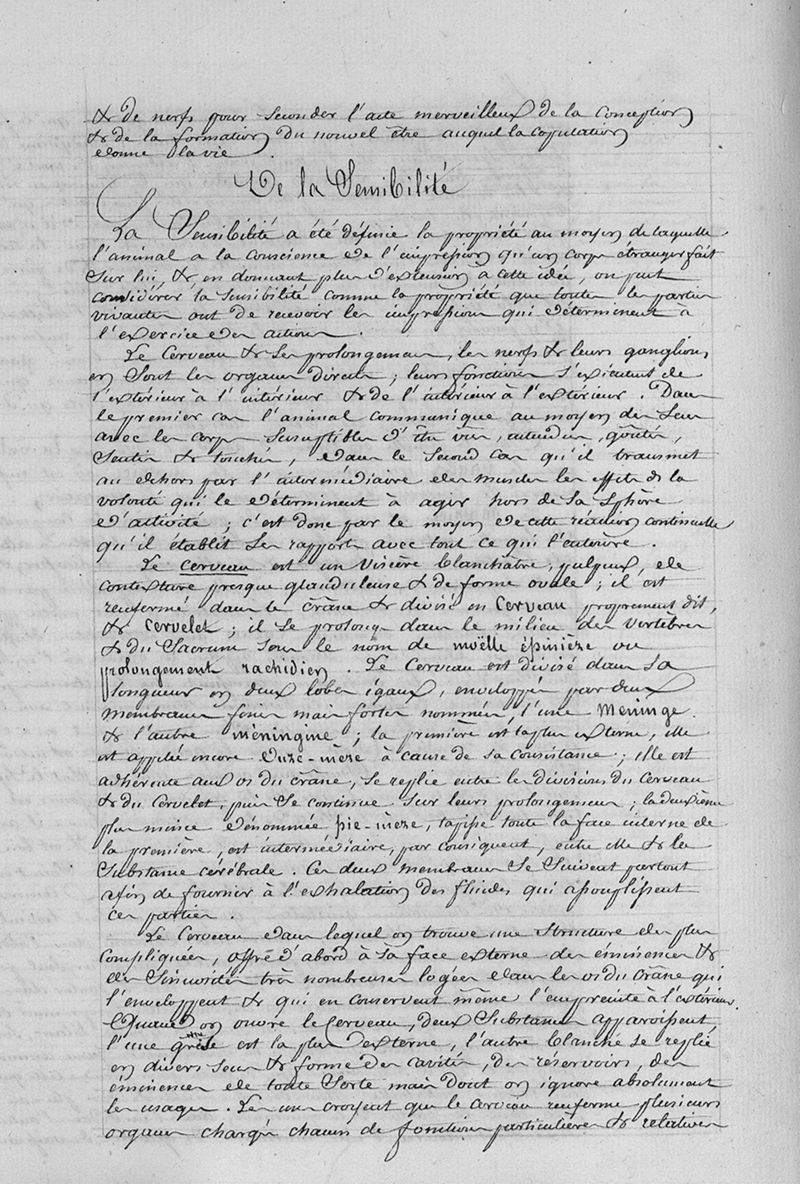 & de nerfs pour seconder l'acte merveilleux de la conception
& de la formation du nouvel être auquel la copulation
donne la vie.
De la Sensibilité
La Sensibilité a été définie la propriété au moyen de laquelle
l'animal a la conscience de l'impression qu'un corps étranger fait
sur lui, & en donnant plus d'extension à cette idée, on peut
considérer la sensibilité comme la propriété que toutes les parties
vivantes ont de recevoir les impressions qui déterminent à
l'exercice des actions.
Le Cerveau & ses prolongemens, les nerfs & leurs ganglions
en sont les organes directs ; leurs fonctions s'exécutent de
l'extérieur à l'intérieur & de l'intérieur à l'extérieur. Dans
le premier cas l'animal communique au moyen des sens
avec les corps susceptibles d'être vus, entendus, goûtés,
sentis & touchés, dans le second cas qu'il transmet
au dehors par l'intermédiaire des muscles les effets de la
volonté qui le déterminent à agir hors de sa sphère
d'activité ; c'est donc par le moyen de cette réaction continuelle
qu'il établit ses rapports avec tout ce qui l'entoure.
Le Cerveau est un viscère blanchâtre, pulpeux, de
contexture presque glanduleuse & de forme ovale ; il est
renfermé dans le crâne & divisé en Cerveau proprement dit,
& Cervelet ; il se prolonge dans le milieu des vertèbres
& du Sacrum sous le nom de moëlle épinière ou
prolongement rachidien. Le Cerveau est divisé dans sa
longueur en deux lobes égaux, enveloppés par deux
membranes fines mais fortes nommées, l'une Meninge
& l'autre méningine ; la première est la plus externe, elle
est appelée encore Dure-mère à cause de sa consistance ; elle est
adhérente aux os du crâne, se replie entre les divisions du Cerveau
& du Cervelet, puis se continue sur leurs prolongemens ; la deuxième
plus mince dénommée pie-mère, tapisse toute la face interne de
la première, est intermédiaire, par conséquent, entre elle & la
substance cérébrale. Ces deux membranes se suivent partout
afin de fournir à l'exhalation des fluides qui assouplissent
ces parties.
Le Cerveau dans lequel on trouve une structure des plus
compliquées, offre d'abord à sa face externe des éminences &
des sinuosités très nombreuses logées dans les os du crâne qui
l'enveloppent & qui en conservent même l'empreinte à l'extérieur.
Quand on ouvre le Cerveau, deux Substances apparoissent,
l'une grise est la plus externe, l'autre blanche se replie
en divers sens & forme des cavités, des réservoirs, des
éminences de toute sorte mais dont on ignore absolument
les usages. Les uns croyent que le cerveau renferme plusieurs
organes chargés chacun de fonctions particulières & relatives